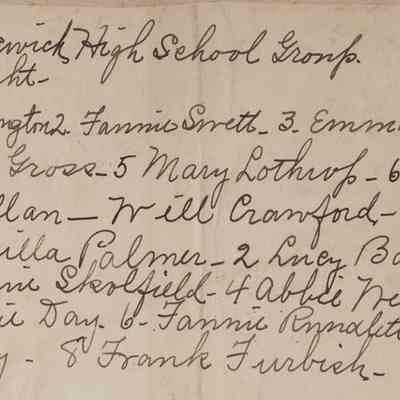 swick, High School Group.
ht-
ngton 2. Fannie Swett- 3. Emm
Gross- 5 Mary Lothrop- 6
llan- Will Crawford,-
illa Palmer- 2 Lucy Ba
nie Skolfield- 4 Abbie We
ie Day. 6- Fannie Rundlett
y- 8 Frank Furbish,-